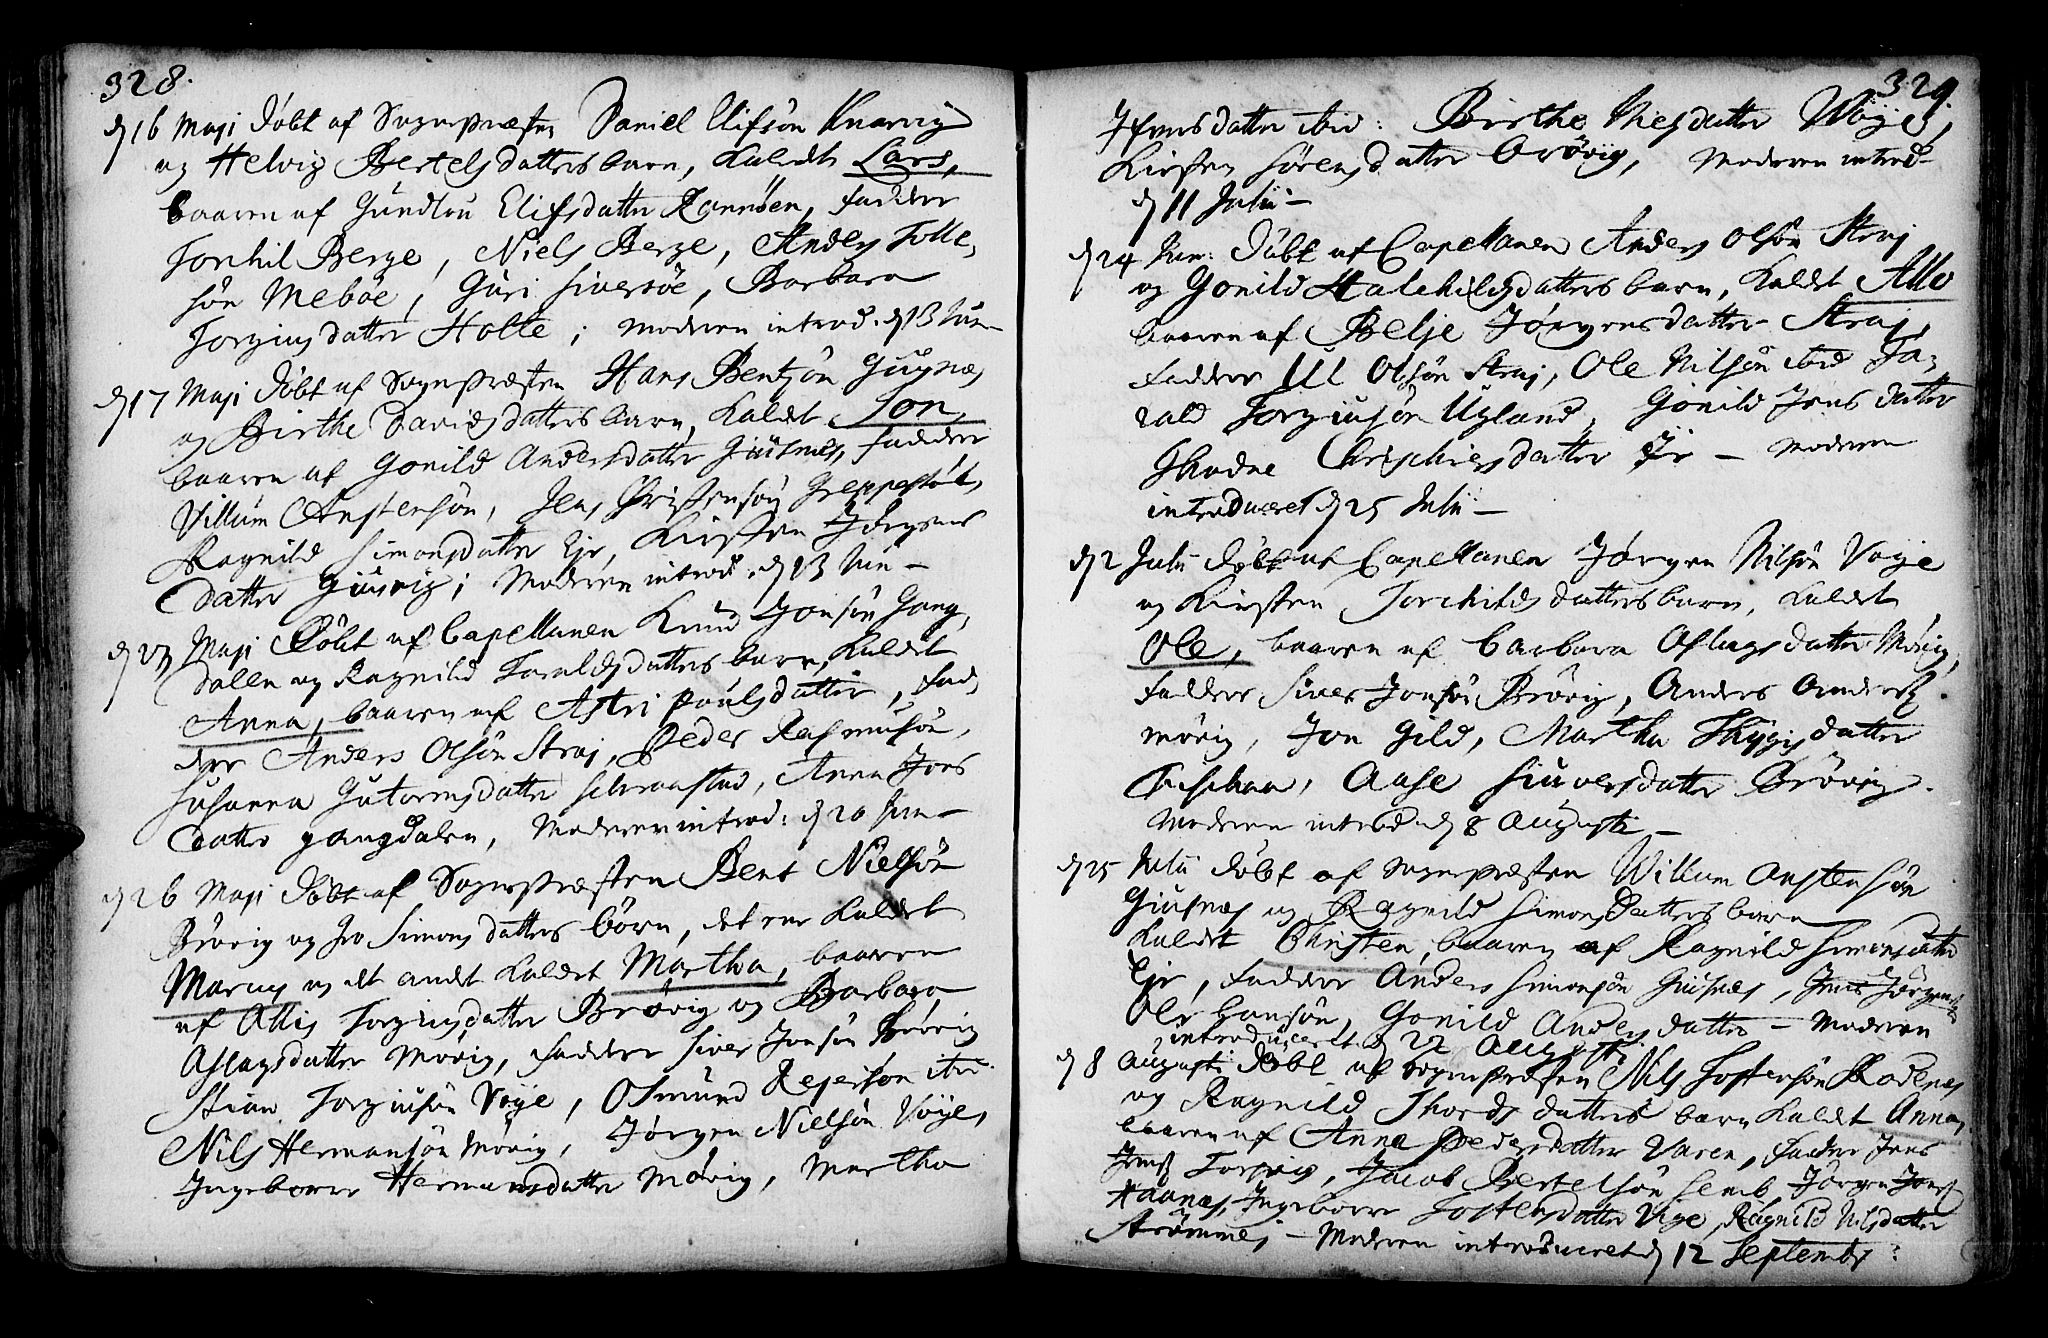 328.
d 16 Maji døbt af Sognepræsten Daniel Elifsøn Knarvig
og Helvig Bertelsdatters barn, kaldet Lars,
baaren af Gundlou Elifsdatter Rannøen, faddere
Torkil Berge, Niels Berge, Anders Tolle-
søn Mebøe, Guri Siversøe, Barbara
Torgiusdatter Holte; Moderen introd. d 13 Jun-
d 17 Maji døbt af Sognepræsten Hans Bentsøn Giusnæs
og Birthe Davidsdatters barn, kaldet Jon,
baaren af Gonild Andersdatter Giusnes, faddere
Villum Anstensøn, Jens Christensøn Greppestøl,
Ragnild Simonsdatter Eje, Kirsten Jørgens
datter Giusvig; Moderen introd. d 13 Jun-
d 23 Maji døbt af Capellanen Knud Jonsøn Gang,
dalen og Ragnild Taraldsdatters barn, kaldet
Anna, baaren af Astri Poulsdatter, fad,
dere Anders Olsøn Straj, Peder Rasmusøn,
Susanna Gutormsdatter, Anna Jons
datter gangdalen, Moderen introd: d 20 Jun-
d 26 Maji døbt af Sognepræsten Bent Nielsøn
Brøvig og Simonsdatters børn, det ene kaldet
Marcus og det andet kaldet Martha, baaren
af Torgiusdatter Brøvig og Barbara
Aslagsdatter Møvig, faddere Siver Jonsøn Brøvig
Stian Torgiusøn Voje, Osmund Rejersøn ibi.
Nils Hermansøn Møvig, Jørgen Nielsøn Vøje,
Ingeborre Hermansdatter Møvig, Martha
329.
Ifversdatter ibid: Birthe Nielsdatter Woje,
Kirsten Sørensdatter Brøvig, Moderen introd-
d 11 Julii-
d 24 Jun: døbt af Capellanen Anders Olsøn Straj
og Gonild Halchildsdatters barn, kaldet
baaren af Belje Jørgensdatter Straj,
faddere Ull Olsøn Straj, Ole Nilsøn ibid Ta-
rald Torgiusøn Ugland, Gonild Jens datter
datter - Moderen
introduceret d 25 Julii-
d 2 Julii døbt af Capellanen Jørgen Nilsøn Voje
og Kirsten Torchildsdatters barn, kaldet
Ole, baaren af Barbara Aslagsdatter Møvig,
faddere Siver Jonsøn Brøvig, Anders Anders.
Møvig, Jon Gild, Martha datter
Aase Siuversdatter Brøvig.
Moderen introd d 8 Augusti-
d 25 Julii døbt af Sognepræsten Willum Anstensøn
Giusnes og Ragnild Simonsdatters barn
kaldet Christen, baaren af Ragnild Simonsdatter
Eje, faddere Anders Simonsøn Giusnes, Jens Jørgens.
Ole Hansøn, Gonild Andersdatter - Moderen
introduceret d 22 Augusti
d 8 Augusti døbt af Sognepræsten Nils Tostensøn Rodenes
og Ragnild Thordsdatters barn kaldet Anna,
baaren af Anna Pedersdatter Varen, faddere Jens
Jens. Torsvig, Jacob Bertelsøn Semb, Jørgen Jens.
Haanes, Ingeborre Tostensdatter Vige, Ragnild Nilsdatter
Strømme, - Moderen introduceret d 12 Septembr: